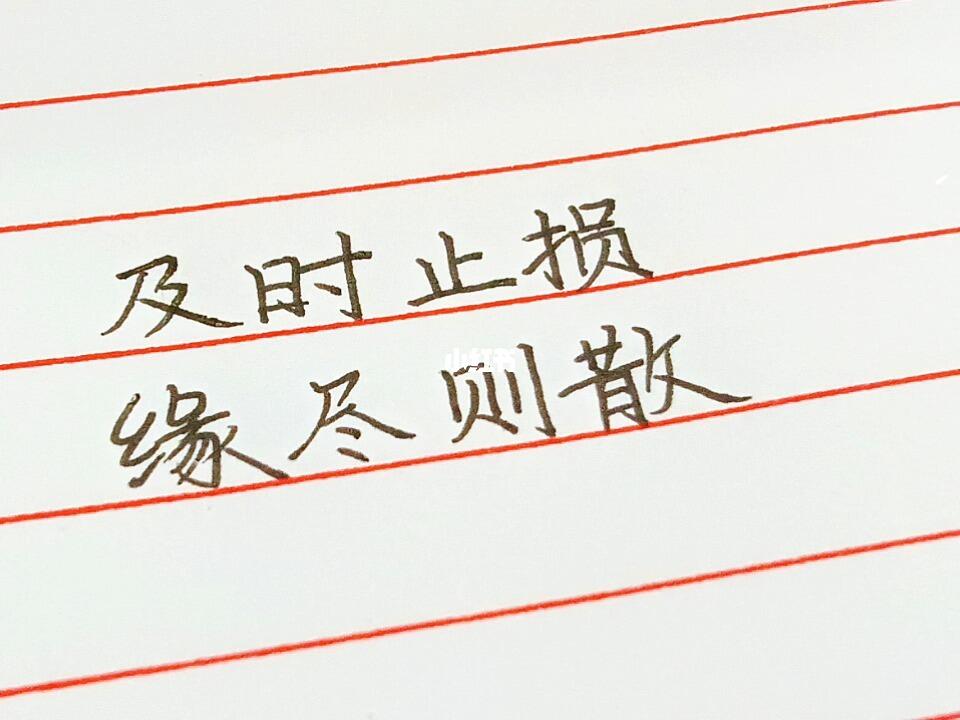 及时止损
缘尽则散
小红书